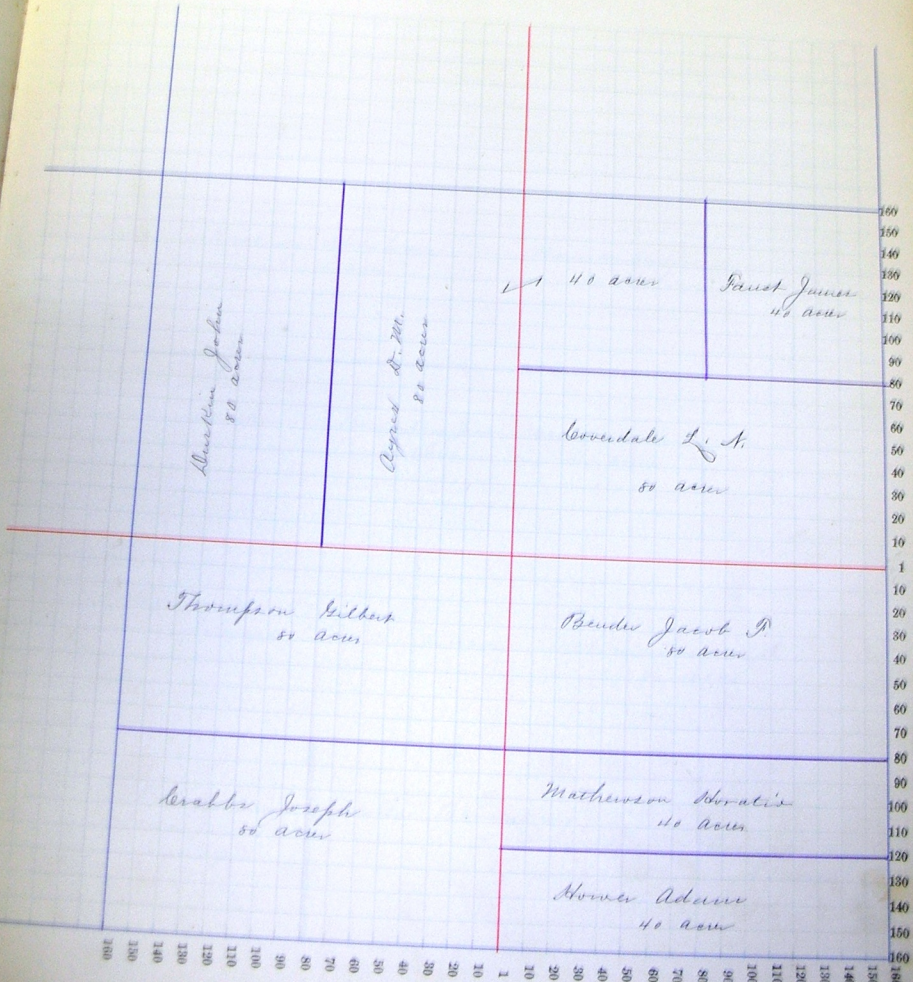 Durkin John
80 acres
D. M.
80 acres
40 acres
Faust James
40 acres
Coverdale L. N.
80 acres
Thompson Gilbert
80 acres
Bender Jacob F.
80 acres
Crabbs Joseph
80 acres
Mathewson Horatio
40 acres
Hower Adam
40 acres
160
150
140
130
120
110
100
90
80
70
60
50
40
30
20
10
1
10
20
30
40
50
60
70
80
90
100
110
120
130
140
150
160
160 150 140 130 120 110 100 90 80 70 60 50 40 30 20 10 1 10 20 30 40 50 60 70 80 90 100 110 120 130 140 150 160